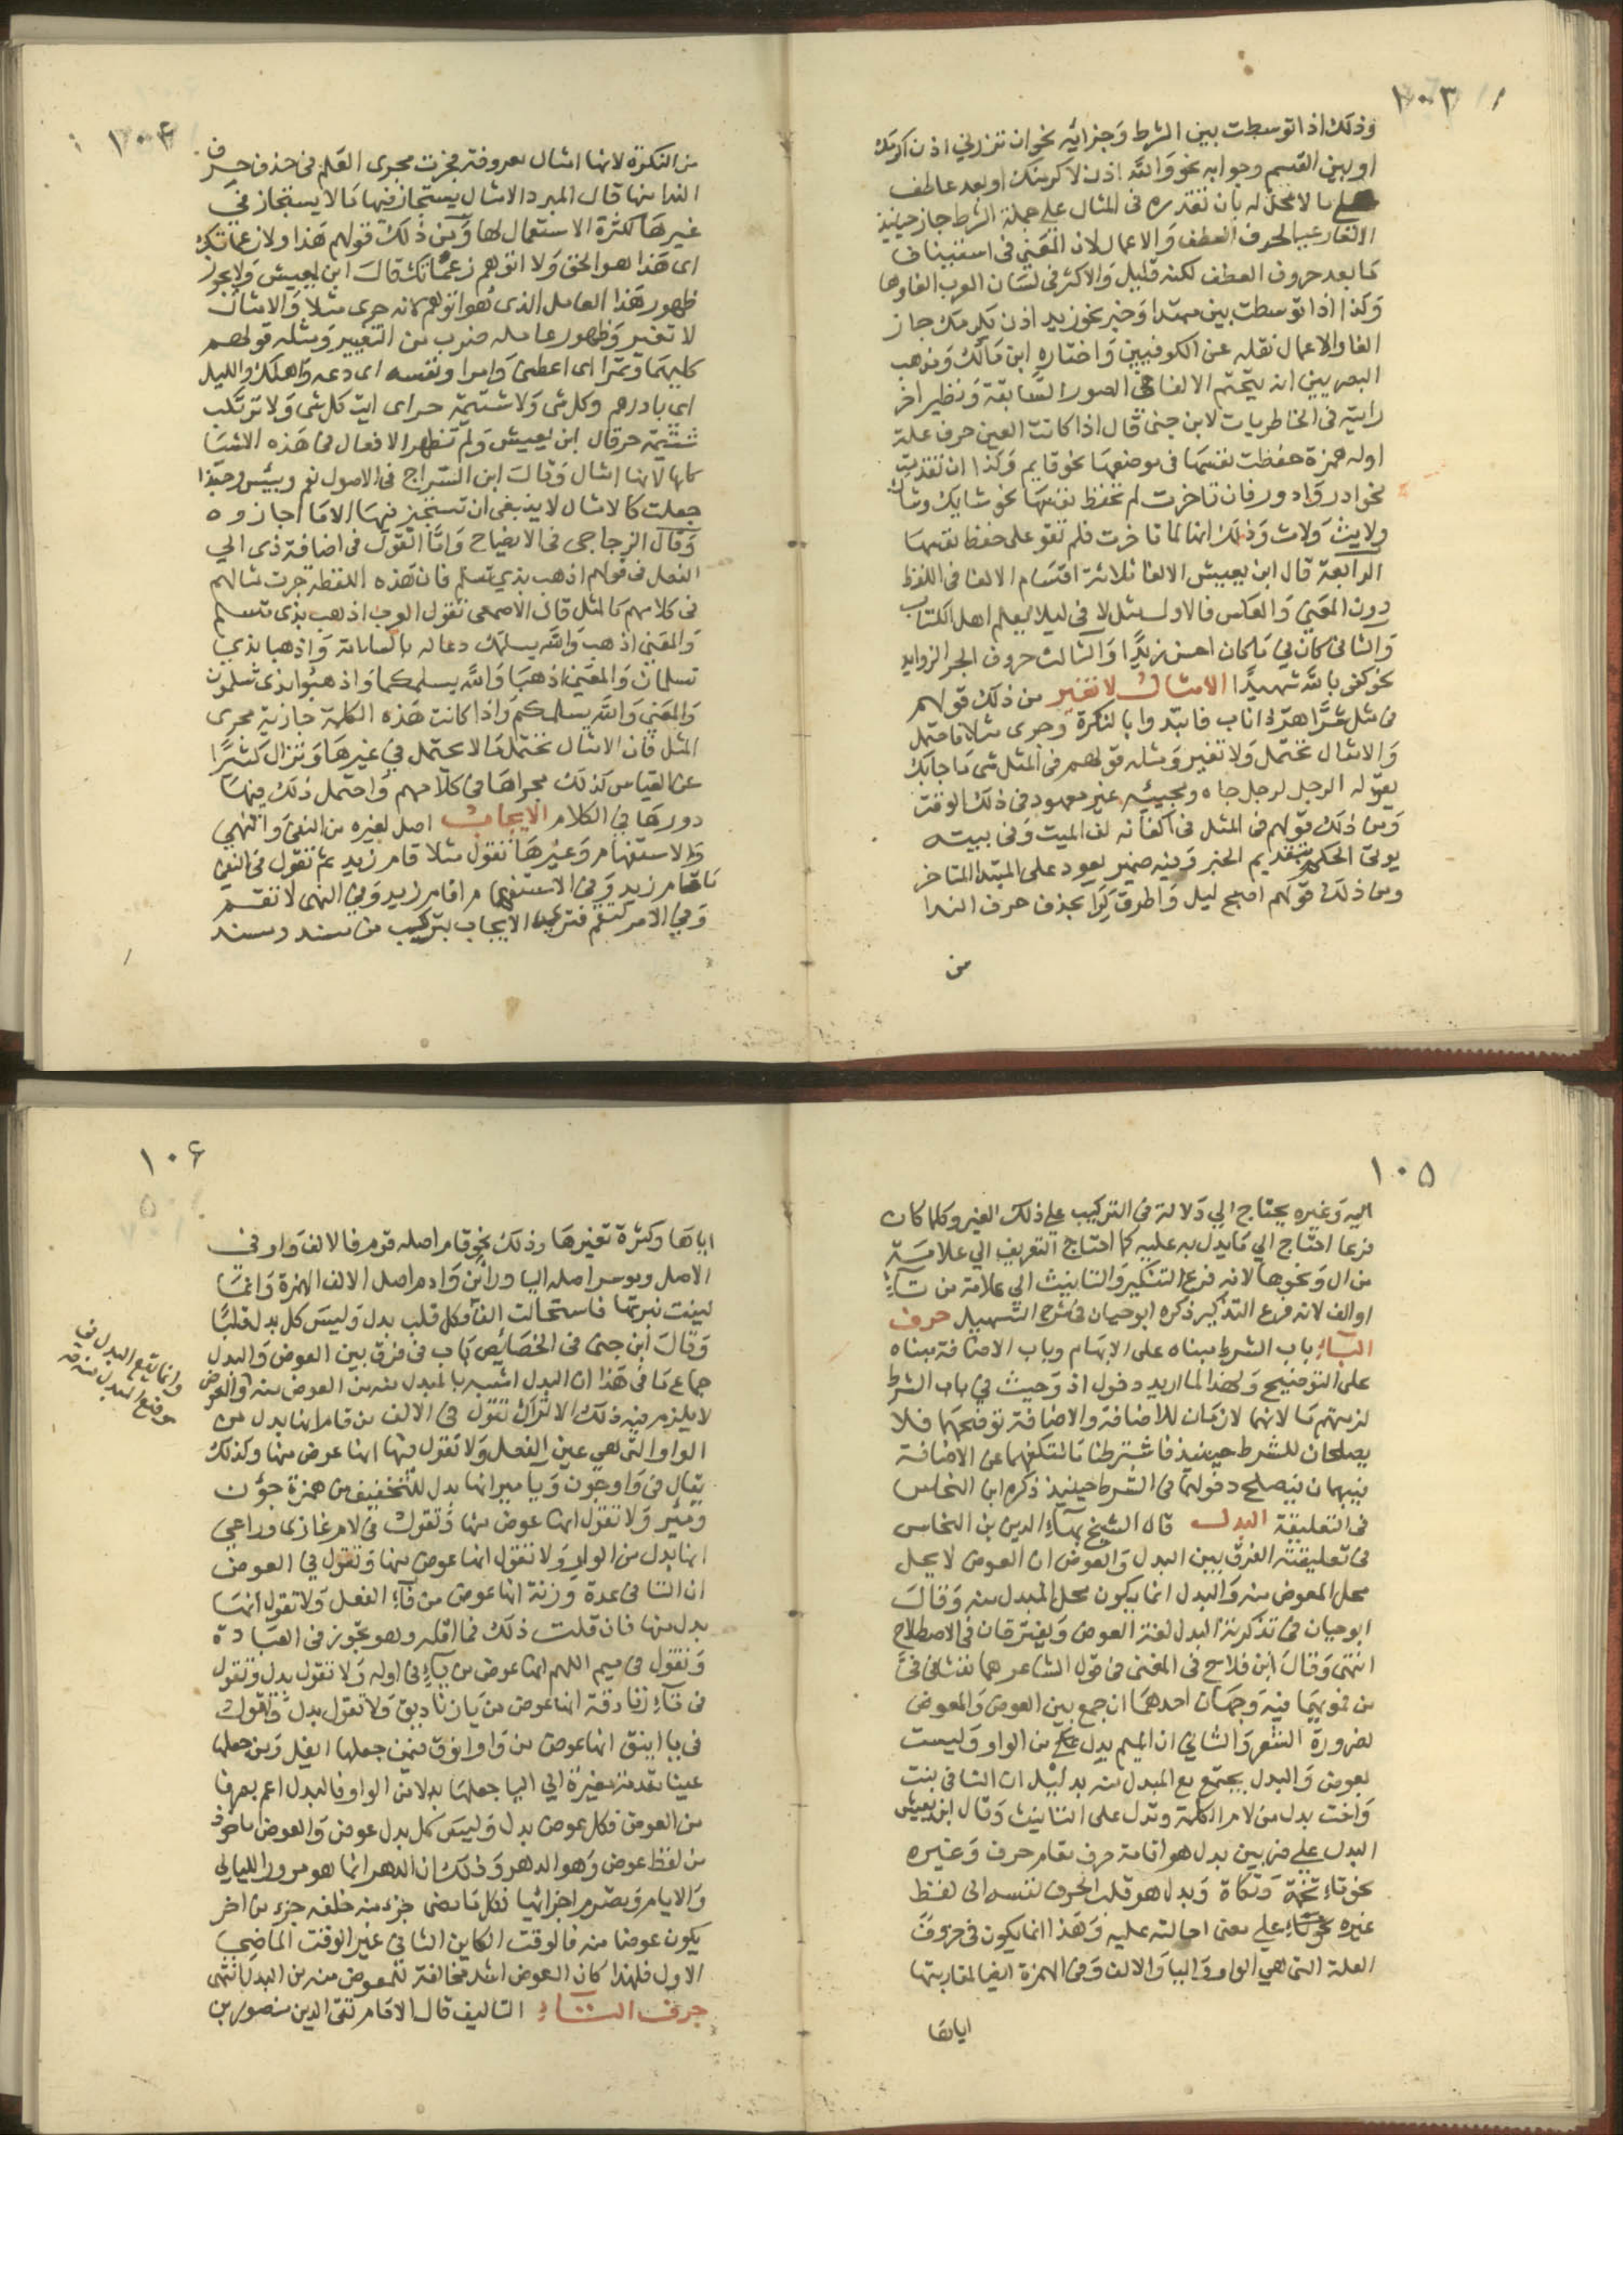 ١٠٣
وذلك اذا توسطت بين الشرط وجزائه نحو ان تزرني اذن اكرمك
او بين القسم وجوابه نحو والله اذن لاكرمنك او بعد عاطف
على ما لا محل له بان تقدره في المثال على جملة الشرط جاز حينئذ
الالغا رعيا لحرف العطف والاعمال لان المعنى في استيناف
ما بعد حروف العطف لكنه قليل والاكثر في لسان العرب الغاوها
وكذا اذا توسطت بين مبتدا وخبر نحو زيد اذن يكرمك جاز
الغا والاعمال نقله عن الكوفيين واختاره ابن مالك ومذهب
البصريين انه يتحتم الالغا في الصور السابقة ونظير اخر
رايته في الخاطريات لابن جنى قال اذا كانت العين حرف علة
اوله همزة حفظت نفسها في موضعها نحو قايم وكذا ان تقدمت
نحو ادر وادور فان تاخرت لم تحفظ نفسها نحو شايك وشاك
ولايث ولاث وذلك انها لما تاخرت فلم تقو على حفظ نفسها
الرابعة قال ابن يعيش الالغا ثلاثة اقسام الالغا في اللفظ
دون المعنى والعكس فالاول مثل لا في ليلا يعلم اهل الكتاب
والثاني كان في ما كان احسن زيدا والثالث حروف الجر الزوايد
نحو كفى بالله شهيدا الامثال لا تغير من ذلك قولهم
في مثل شرا هر ذا ناب فابتدوا بالنكرة وجرى مثلا فاحتمل
والامثال تحتمل ولا تغير ومثله قولهم في المثل شي ما جابك
يقوله الرجل لرجل جاه ومجيئه غير معهود في ذلك الوقت
ومن ذلك قولهم في المثل في اكفانه لف الميت وفي بيته
يوتى الحكم بتقديم الخبر وفيه ضمير يعود على المبتدا المتاخر
ومن ذلك قولهم اصبح ليل واطرق كرا بحذف حرف الندا
من
١٠٤
من النكرة لانها امثال معروفة فجرت مجرى العلم في حذف حرف
الندا منها قال المبرد الامثال يستجاز فيها ما لا يستجاز في
غيرها لكثرة الاستعمال لها ومن ذلك قولهم هذا ولا زعماتك
اي هذا هو الحق ولا اتوهم زعماتك قال ابن يعيش ولا يجوز
ظهور هذا العامل الذي هو اتوهم لانه جرى مثلا والامثال
لا تغير وظهور عامله ضرب من التغيير ومثله قولهم
كليهما وتمرا اي اعطني وامرا ونفسه اي دعه واهلك والليل
اي بادرهم وكل شي ولا شتيمة حر اي ايت كل شي ولا ترتكب
شتيمة حر قال ابن يعيش ولم تظهر الافعال في هذه الاشيا
كلها لانها امثال وقال ابن السراج في الاصول نعم وبئس وحبذا
جعلت كالامثال لا ينبغي ان تستجيز فيها الا ما اجازوه
وقال الزجاجى في الايضاح واما القول في اضافة ذى الى
الفعل في قولهم اذهب بذي تسلم فان هذه اللفظة جرت مثالهم
في كلامهم كالمثل قال الاصمعى تقول العرب اذهب بذى تسلم
والمعنى اذهب والله يسلمك دعا له بالسلامة واذهبا بذي
تسلمان والمعنى اذهبا والله يسلمكما واذهبوا بذى تسلمون
والمعنى والله يسلمكم واذا كانت هذه الكلمة جارية مجرى
المثل فان الامثال تحتمل ما لا يحتمل في غيرها وتزال كثيرا
عن القياس كذلك مجراها في كلامهم واحتمل ذلك فيها
دورها في الكلام الايجاب اصل لغيره من النفي والنهي
والاستفهام وغيرها تقول مثلا قام زيد ثم تقول في النفي
ما قام زيد وفي الاستفهام اقام زيد وفي النهى لا تقم
وفي الامر لتقم فترى الايجاب بتركيب من مسند ومسند
١٠٥
اليه وغيره يحتاج الي دلالة في التركيب على ذلك الغير وكلما كان
فرعا احتاج الي ما يدل به عليه كما احتاج التعريف الي علامة
من ال ونحوها لانه فرع التنكير والتانيث الي علامة من تاء
او الف لانه فرع التذكير ذكره ابو حيان في شرح التسهيل حرف
الباء باب الشرط مبناه على الابهام وباب الاضافة مبناه
على التوضيح ولهذا لما اريد دخول اذ وحيث في باب الشرط
لزمتهما ما لانهما لازمان للاضافة والاضافة توضحهما فلا
يصلحان للشرط حينئذ فاشترطنا ما لتكفهما عن الاضافة
فيبهمان فيصلح دخولهما في الشرط حينيذ ذكره ابن النحاس
في التعليقة البدل قال الشيخ بهاء الدين بن النحاس
في تعليقته الفرق بين البدل والعوض ان العوض لا يحل
محل المعوض منه والبدل انما يكون محل المبدل منه وقال
ابو حيان في تذكرته البدل لغة العوض ويفترقان في الاصطلاح
انتهى وقال ابن فلاح في المغنى في قول الشاعر هما نفثا في في
من فمويهما فيه وجهان احدهما ان جمع بين العوض والمعوض
لضرورة الشعر والثاني ان الميم بدل من الواو وليست
بعوض والبدل يجتمع مع المبدل منه بدليل ان التا في بنت
واخت بدل من لام الكلمة وتدل على التانيث وقال ابن يعيش
البدل على ضربين بدل هو اقامة حرف مقام حرف وغيره
نحو تاء تخمة وتكاة وبدل هو قلب الحرف نفسه الى لفظ
غيره على معنى احالته عليه وهذا انما يكون في حروف
العلة التى هي الواو واليا والالف وفي الهمزة ايضا لمقاربتها
اياها
١٠٦
اياها وكثرة تغيرها وذلك نحو قام اصله قوم فالالف واو في
الاصل وموسر اصله اليا وراس وادم اصل الالف الهمزة وانما
لينت نبرتها فاستحالت الفا فكل قلب بدل وليس كل بدل قلبا
وقال ابن جنى في الخصائص باب في فرق بين العوض والبدل
جماع ما في هذا ان البدل اشبه بالمبدل منه من العوض منه والعوض
لا يلزم فيه ذلك الا تراك تقول في الالف من قام انها بدل من
الواو التى هي عين الفعل ولا تقول فيها انها عوض منها وكذلك
يقال في واو جون ويا مير انها بدل للتخفيف من همزة جؤن
ومئر ولا تقول انها عوض منها وتقول في لام غازى وداعي
انها بدل من الواو ولا تقول انها عوض منها وتقول في العوض
ان التا في عدة وزنة انها عوض من فاء الفعل ولا تقول انها
بدل منها فان قلت ذلك فما اقله وهو تجوز في العبادة
وتقول في ميم اللهم انها عوض من ياء في اوله ولا تقول بدل وتقول
في تاء زنادقة انها عوض من يا زناديق ولا تقول بدل وتقول
في يا اينق انها عوض من واو انوق فيمن جعلها ايفل ومن جعلها
عينا مقدمة مغيرة الي اليا جعلها بدلا من الواو فالبدل اعم تصرفا
من العوض فكل عوض بدل وليس كل بدل عوض والعوض ماخوذ
من لفظ عوض وهو الدهر وذلك ان الدهر انما هو مرور الليالي
والايام وتصرم اجزائها فكل ما مضى جزء منه خلفه جزء من اخر
يكون عوضا منه فالوقت الكاين الثاني غير الوقت الماضي
الاول فلهذا كان العوض اشد مخالفة للمعوض منه من البدل انتهى
حرف التاء التاليف قال الامام تقى الدين منصور بن
وانما يقع البدل في
موضع المبدل منه